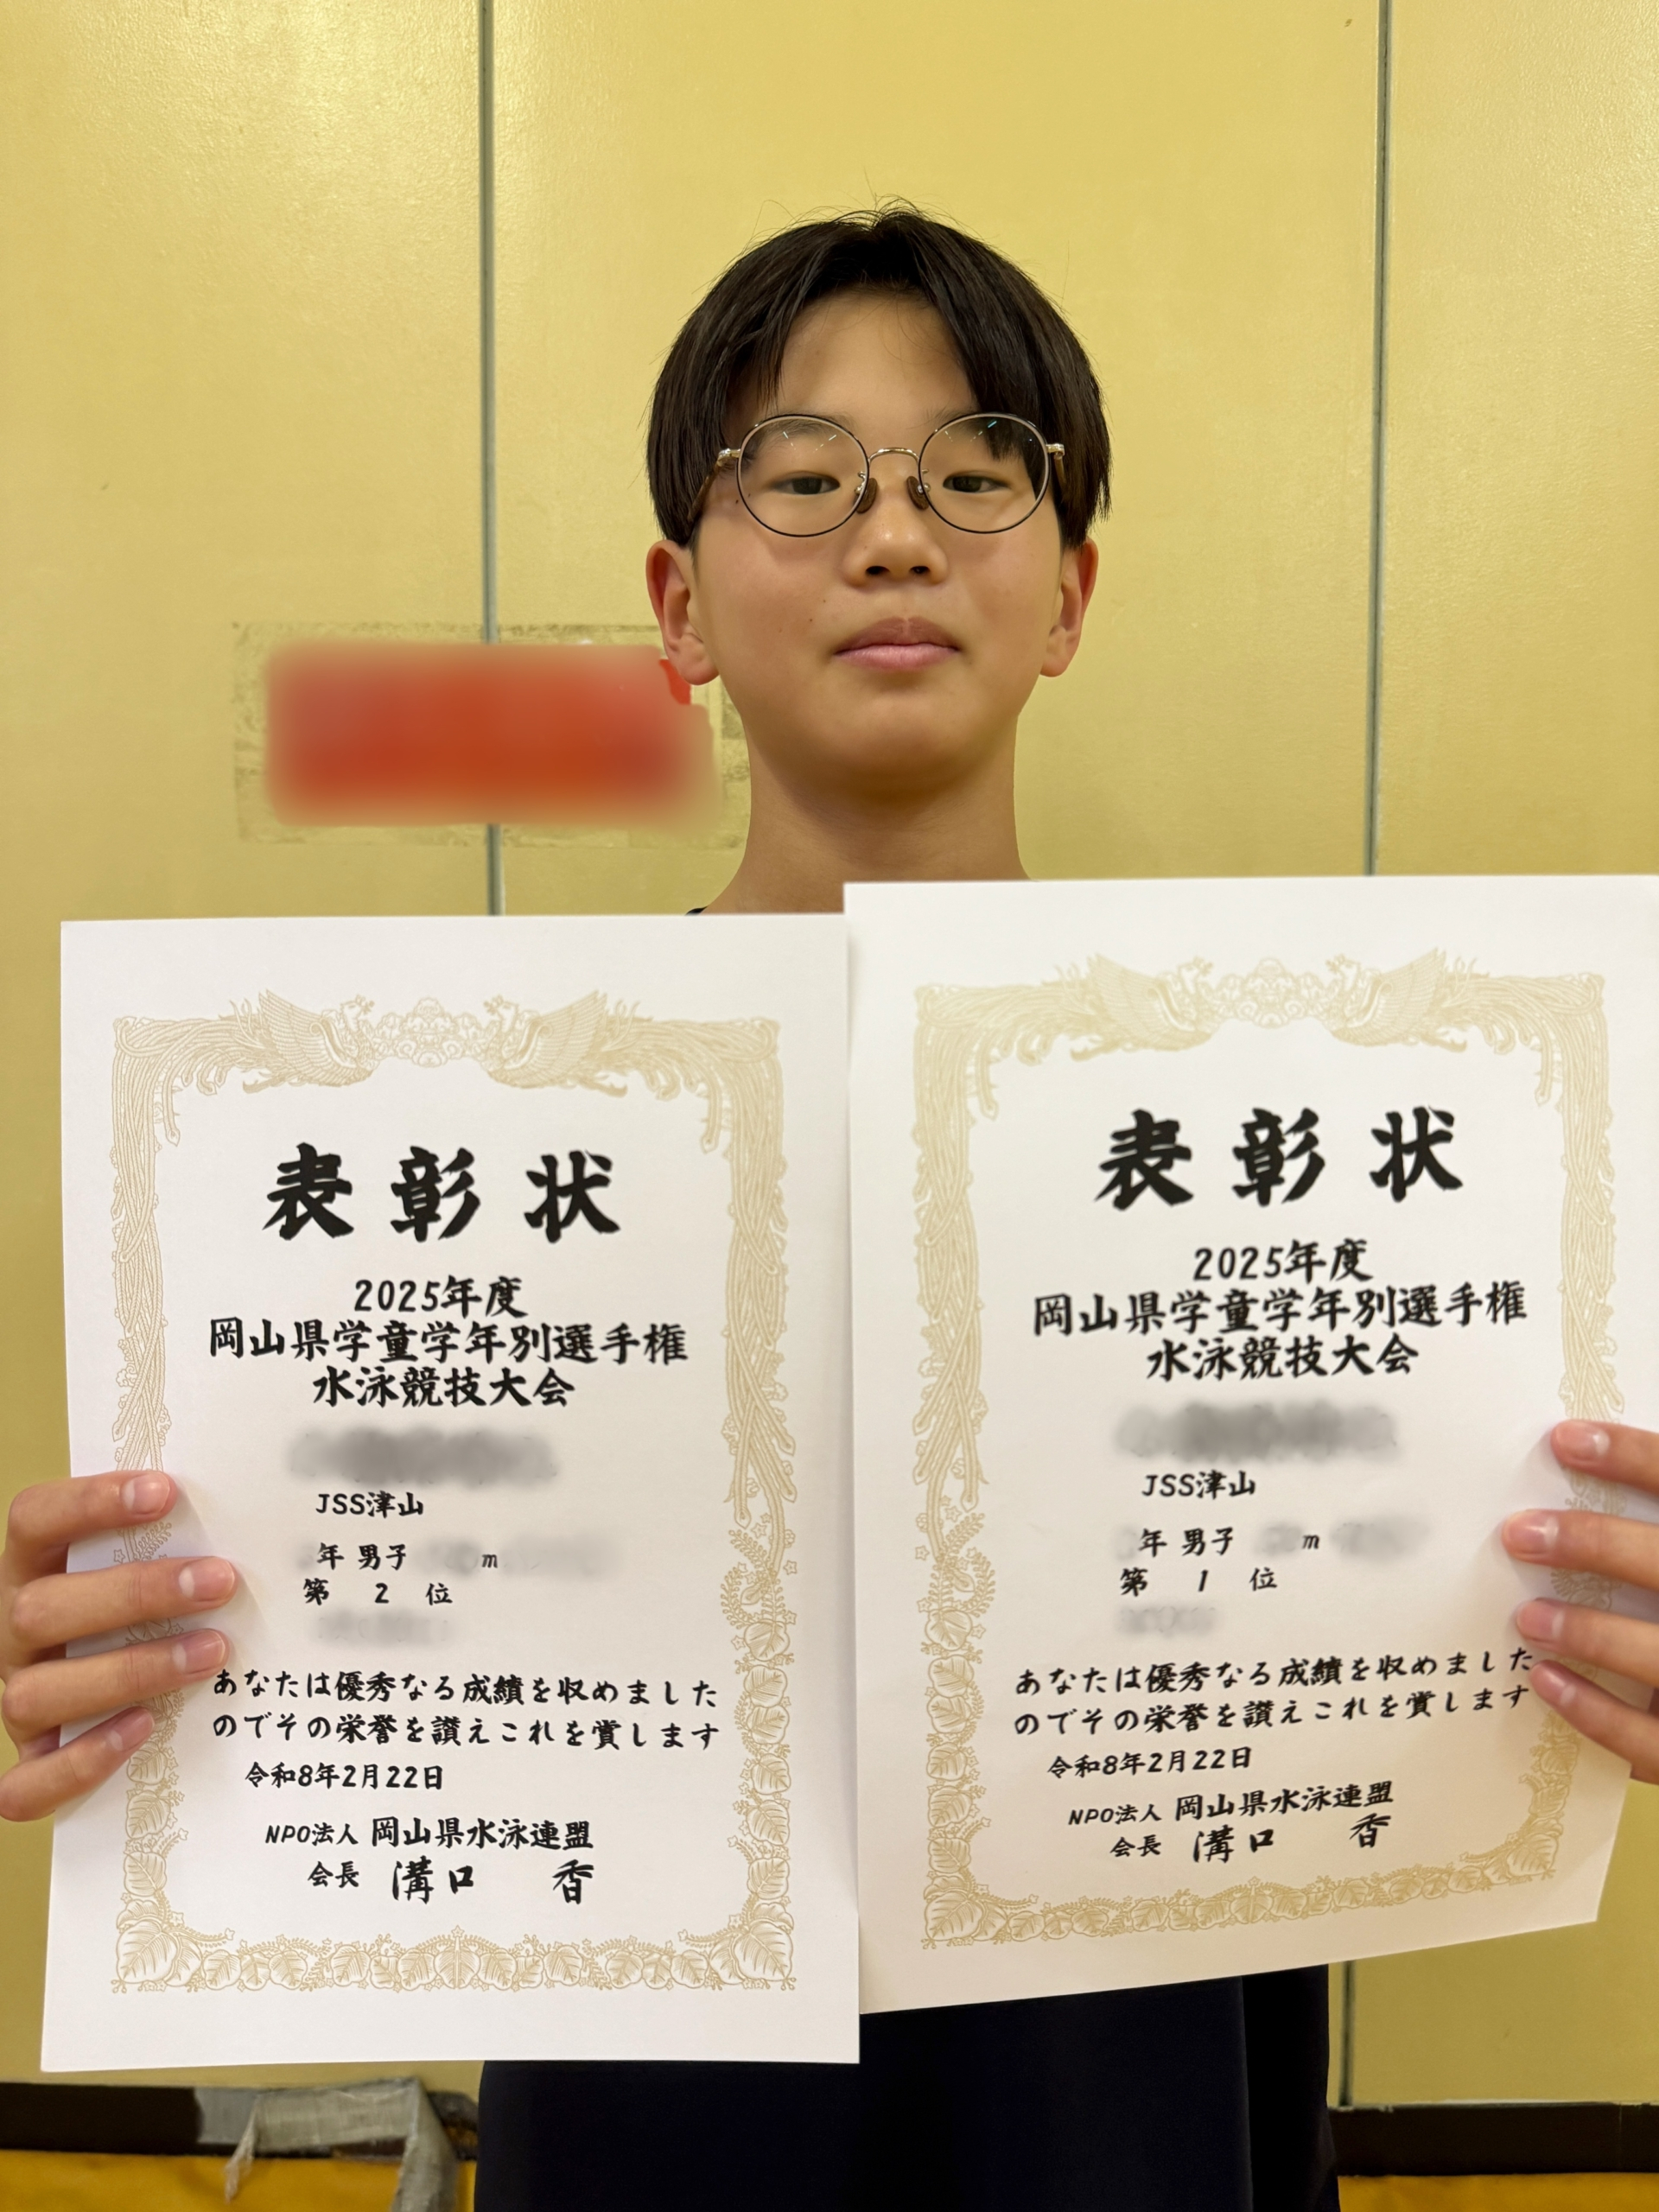 表彰状
2025年度
岡山県学童学年別選手権
水泳競技大会
JSS津山
年 男子 m
第 2 位
あなたは優秀なる成績を収めました
のでその栄誉を讃えこれを賞します
令和8年2月22日
NPO法人 岡山県水泳連盟
会長 溝口 香
表彰状
2025年度
岡山県学童学年別選手権
水泳競技大会
JSS津山
年 男子 m
第 1 位
あなたは優秀なる成績を収めました
のでその栄誉を讃えこれを賞します
令和8年2月22日
NPO法人 岡山県水泳連盟
会長 溝口 香